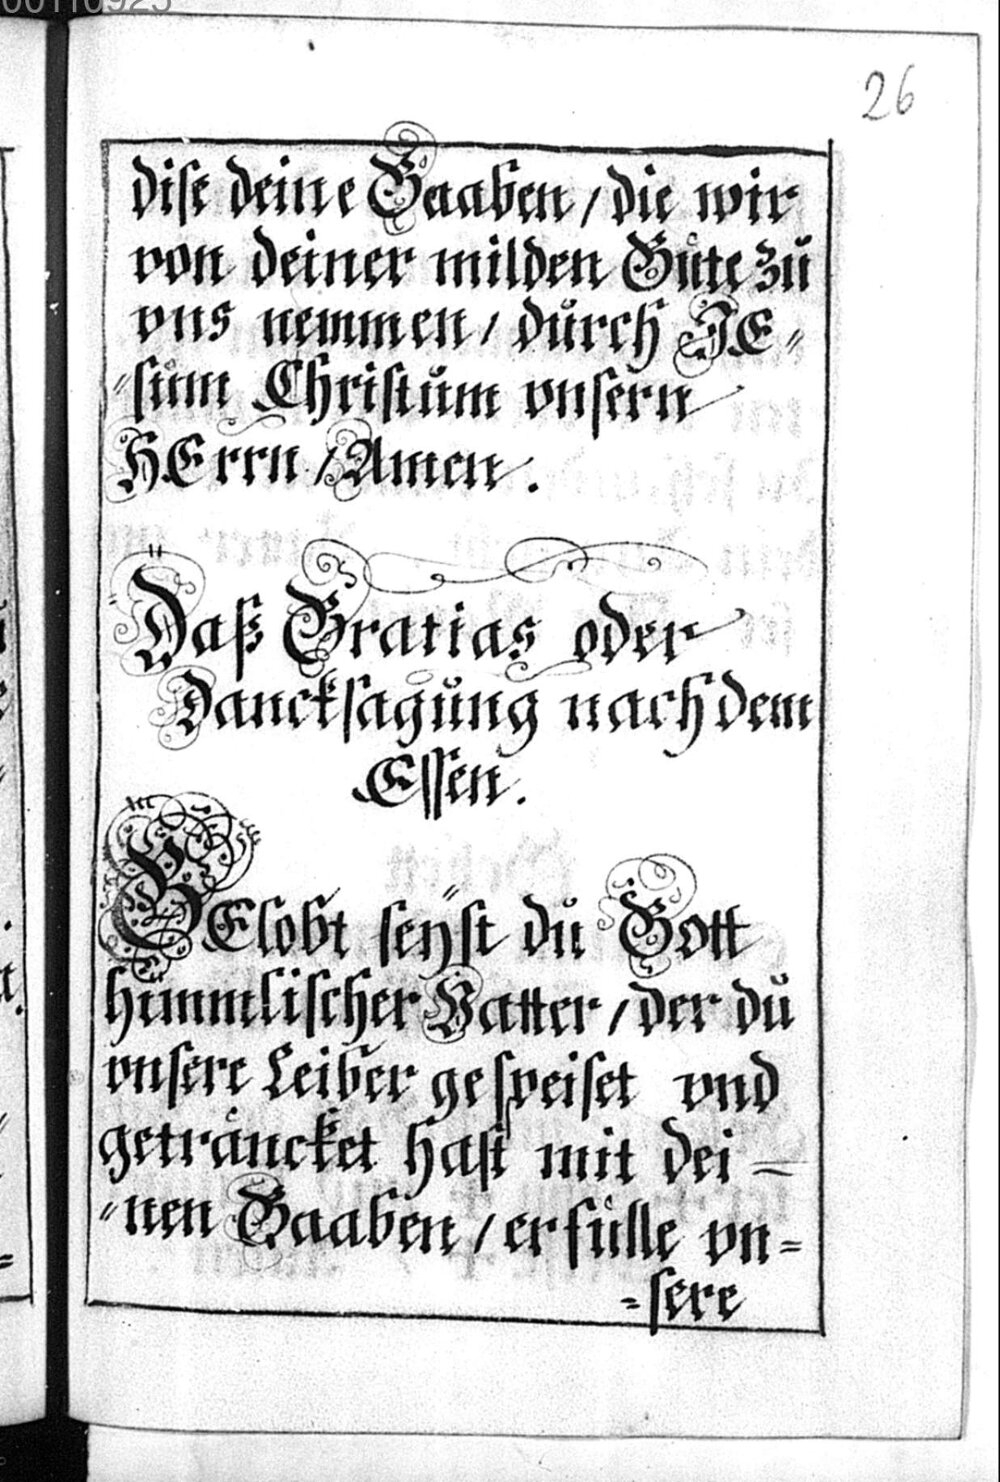 00110925
26
dise deine Gaaben / die wir
von deiner milden Güte zů
vns nemmen / dŭrch JE=
=sŭm Christŭm vnsern
HErrn / Amen.
Daß Gratias oder
Dancksagŭng nach dem
Essen.
GElobt seÿst dŭ Gott
himmlischer Vatter / der dŭ
vnsere Leiber gespeiset vnd
geträncket hast mit dei=
=nen Gaaben / erfülle vn=
=sere